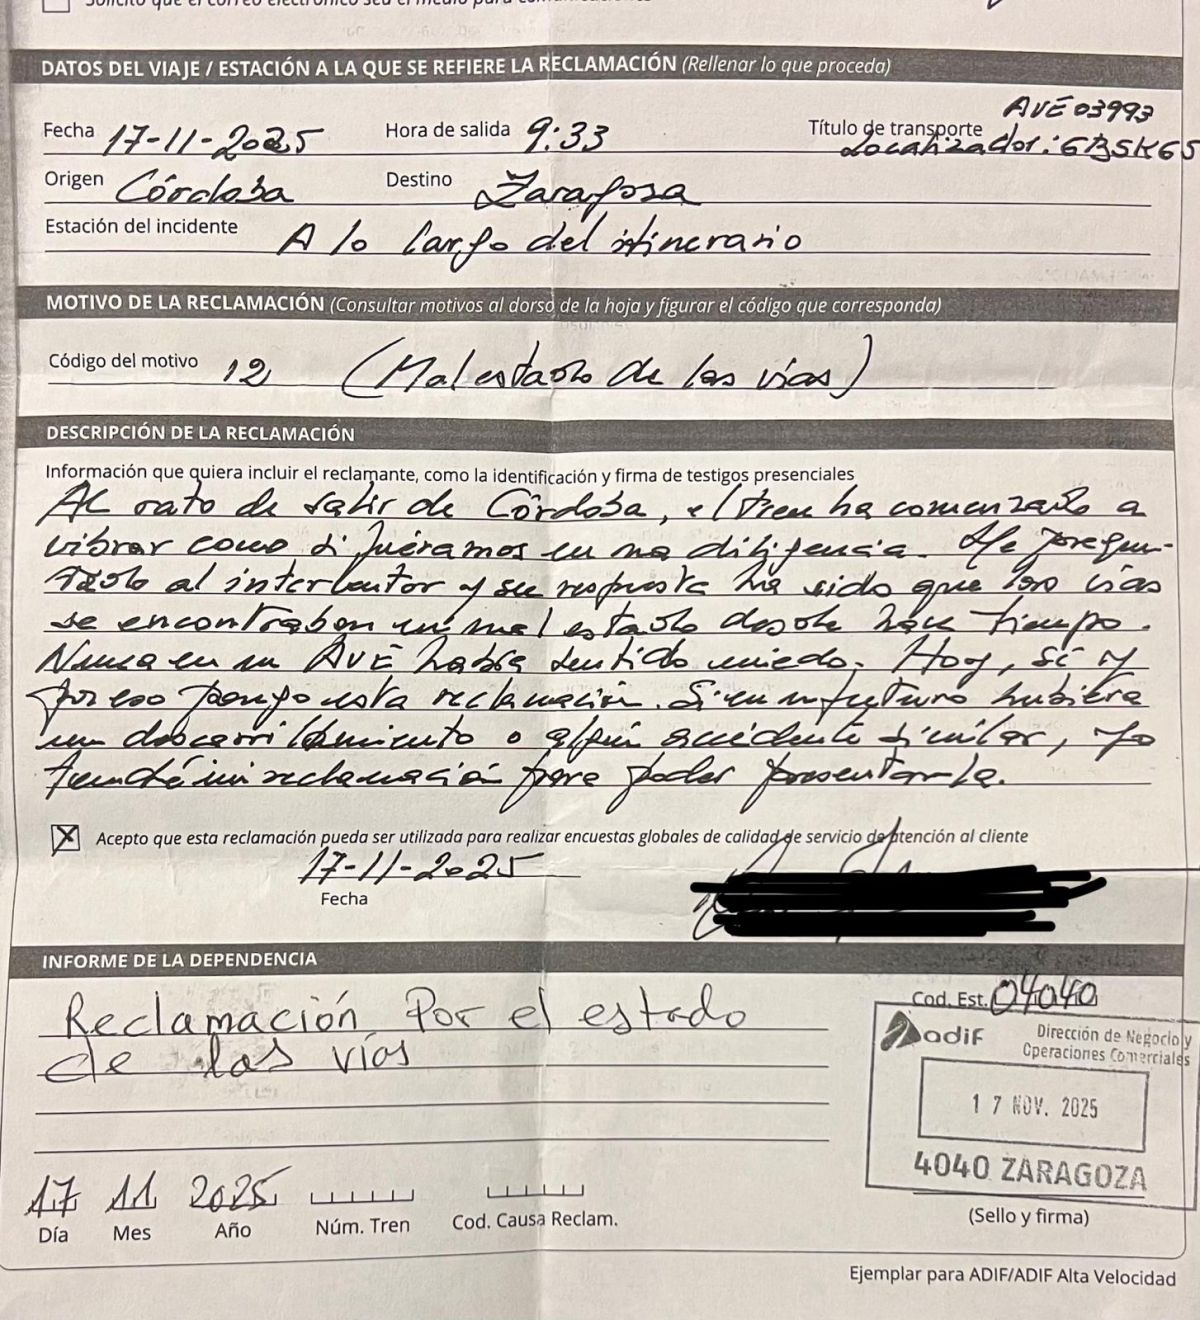 Solicito que el correo electrónico sea el medio para comunicaciones
DATOS DEL VIAJE / ESTACIÓN A LA QUE SE REFIERE LA RECLAMACIÓN (Rellenar lo que proceda)
AVE 03993
Fecha 17-11-2025 Hora de salida 9:33 Título de transporte Localizador: GBSK65
Origen Córdoba Destino Zaragoza
Estación del incidente A lo largo del itinerario
MOTIVO DE LA RECLAMACIÓN (Consultar motivos al dorso de la hoja y figurar el código que corresponda)
Código del motivo 12 (Mal estado de las vías)
DESCRIPCIÓN DE LA RECLAMACIÓN
Información que quiera incluir el reclamante, como la identificación y firma de testigos presenciales
Al rato de salir de Córdoba, el tren ha comenzado a
vibrar como si fuéramos en una diligencia. He pregun-
tado al interventor y su respuesta ha sido que las vías
se encontraban en mal estado desde hace tiempo.
Nunca en un AVE había sentido miedo. Hoy, sí y
por eso pongo esta reclamación. Si en un futuro hubiera
un descarrilamiento o algún accidente similar, yo
tendré mi reclamación para poder presentarla.
X Acepto que esta reclamación pueda ser utilizada para realizar encuestas globales de calidad de servicio de atención al cliente
17-11-2025
Fecha
INFORME DE LA DEPENDENCIA
Cod. Est. 04040
Reclamación Por el estado
de las vías
adif Dirección de Negocio y
Operaciones Comerciales
17 NOV. 2025
4040 ZARAGOZA
17 11 2025
Día Mes Año Núm. Tren Cod. Causa Reclam. (Sello y firma)
Ejemplar para ADIF/ADIF Alta Velocidad